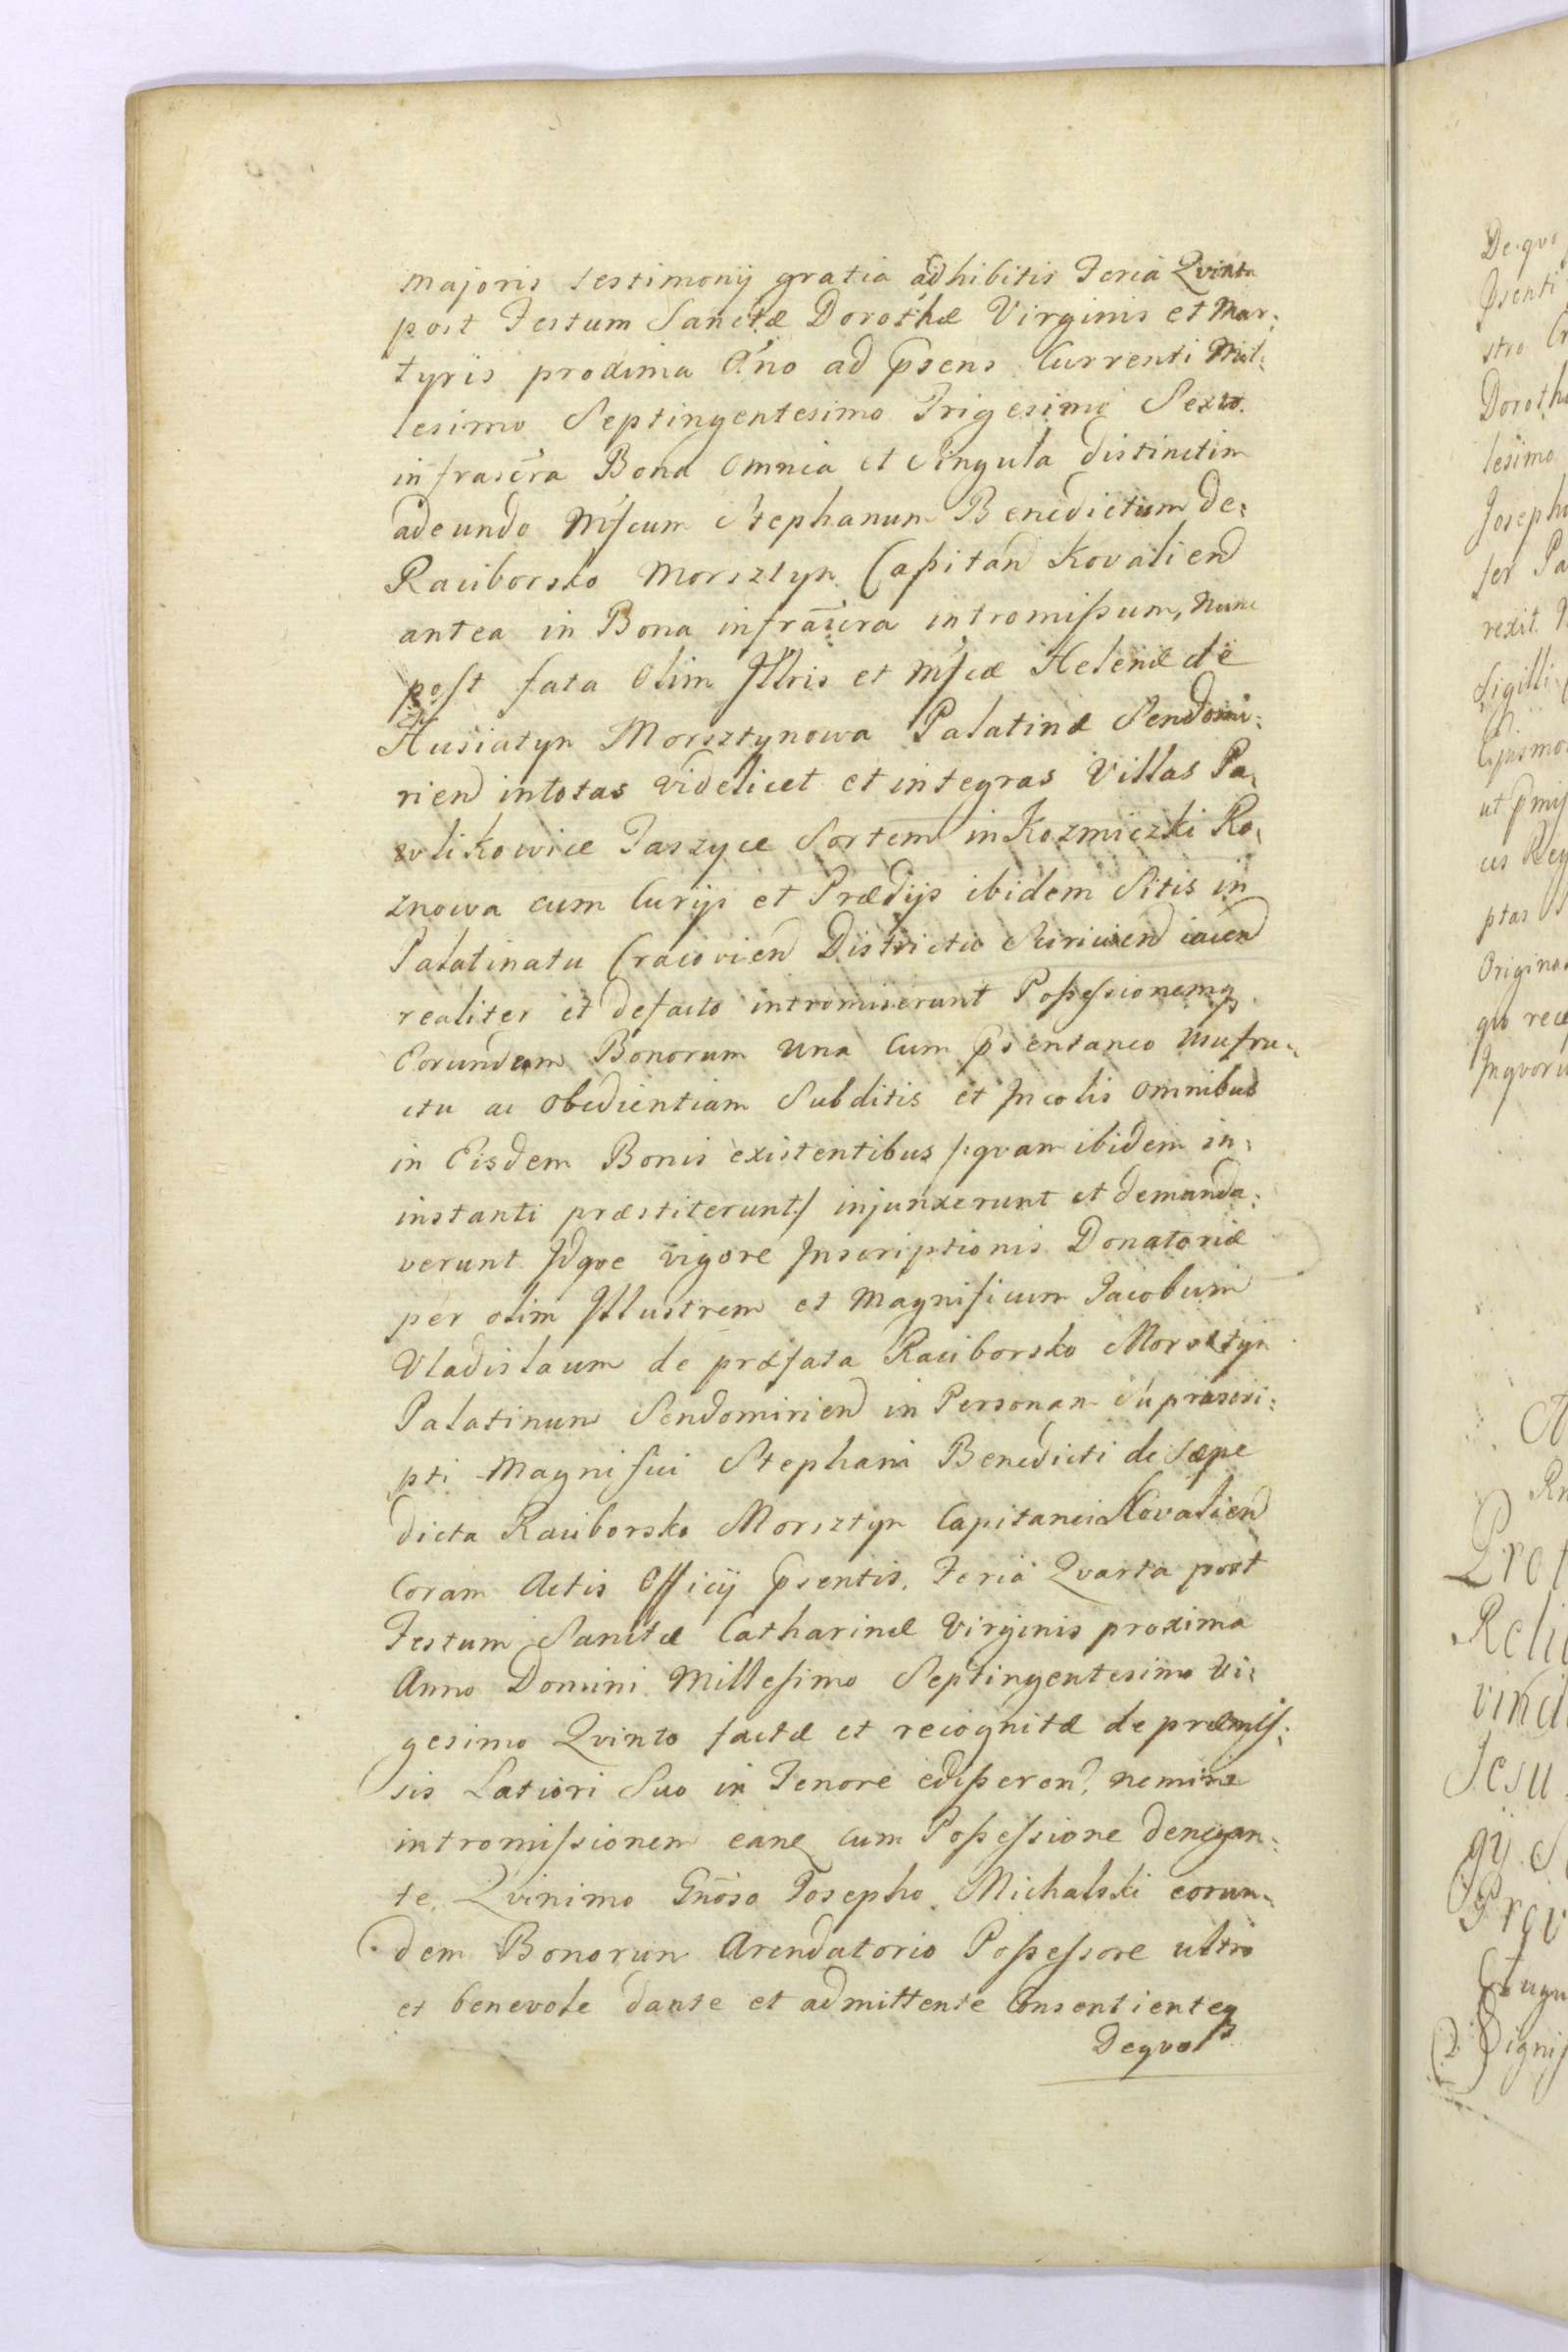 majoris testimonij gratia adhibitis Feria Qvinta
post Festum Sanctæ Dorothæ Virginis et Mar:
tyris proxima Año ad p̃sens Currenti Mil:
lesimo Septingentesimo Trigesimo Sexto.
infrascrã Bona omnia et Singula distinctim
adeundo Mfcum Stephanum Benedictum de:
Raciborsko Morsztyn Capitan̄ Kovalien̄
antea in Bona infrascrã intromissum, nunc
post fata Olim Jllris et Mfcæ Helenæ de
Husiatyn Morsztynowa Palatinæ Sendomi:
rien̄ in totas videlicet et integras Villas Pa,
wlikowice Taszyce Sortem in Kozmiczki Ro,
znowa cum Curijs et Prædijs ibidem Sitis in
Palatinatu Cracovien̄ Districtu Sciricien̄ iacen̄
realiter et de facto intromiserunt Possessionemq
Eorundem Bonorum una Cum p̃sentaneo usufru:
ctu ac obedientiam Subditis et Jncolis omnibus
in Eisdem Bonis existentibus /:qvam ibidem in:
instanti præstiterunt:/ injunxerunt et demanda:
verunt Jdqve vigore Jnscriptionis Donatoriæ
per olim Jllustrem et Magnificum Jacobum
Vladislaum de præfata Raciborsko Morsztyn
Palatinum Sendomirien̄ in Personam Suprascri:
pti Magnifici Stephani Benedicti de Sæpe
dicta Raciborsko Morsztyn Capitanei Kovalien̄
Coram Actis Officij p̃sentis, Feria Qvarta post
Festum Sanctæ Catharinæ Virginis proxima
Anno Domini Millesimo Septingentesimo Vi:
gesimo Qvinto factæ et recognitæ de præmis:
sis Latiori Suo in Tenore edisseren̄, nemine
intromissionem eanq cum Possessione denegan:
te, Qvinimo Gñoso Josepho Michalski eorun:
dem Bonorum Arendatorio Possessore ultro
et benevole dante et admittente Consentienteq
Deqvo

De qvo
stro
Doroth
lesimo
Joseph
rexit
Sigilli
ut
ptas
Origina